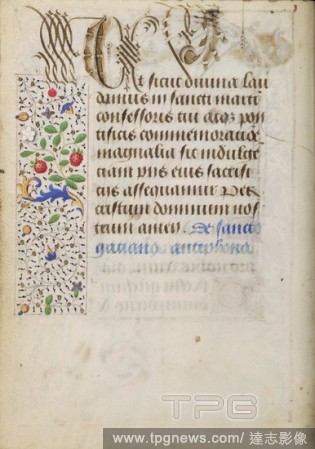 Ut sicut divina lau
damus in sancti marti
confessoris tui atqz pon
tificis commemoratione
magnalia sic indulge
ciam piis eius
assequamur Per
cristum dominum nos
trum amen. De sancto
gaciano antiphona
TPG
www.tpgnews.com/ 達志影像